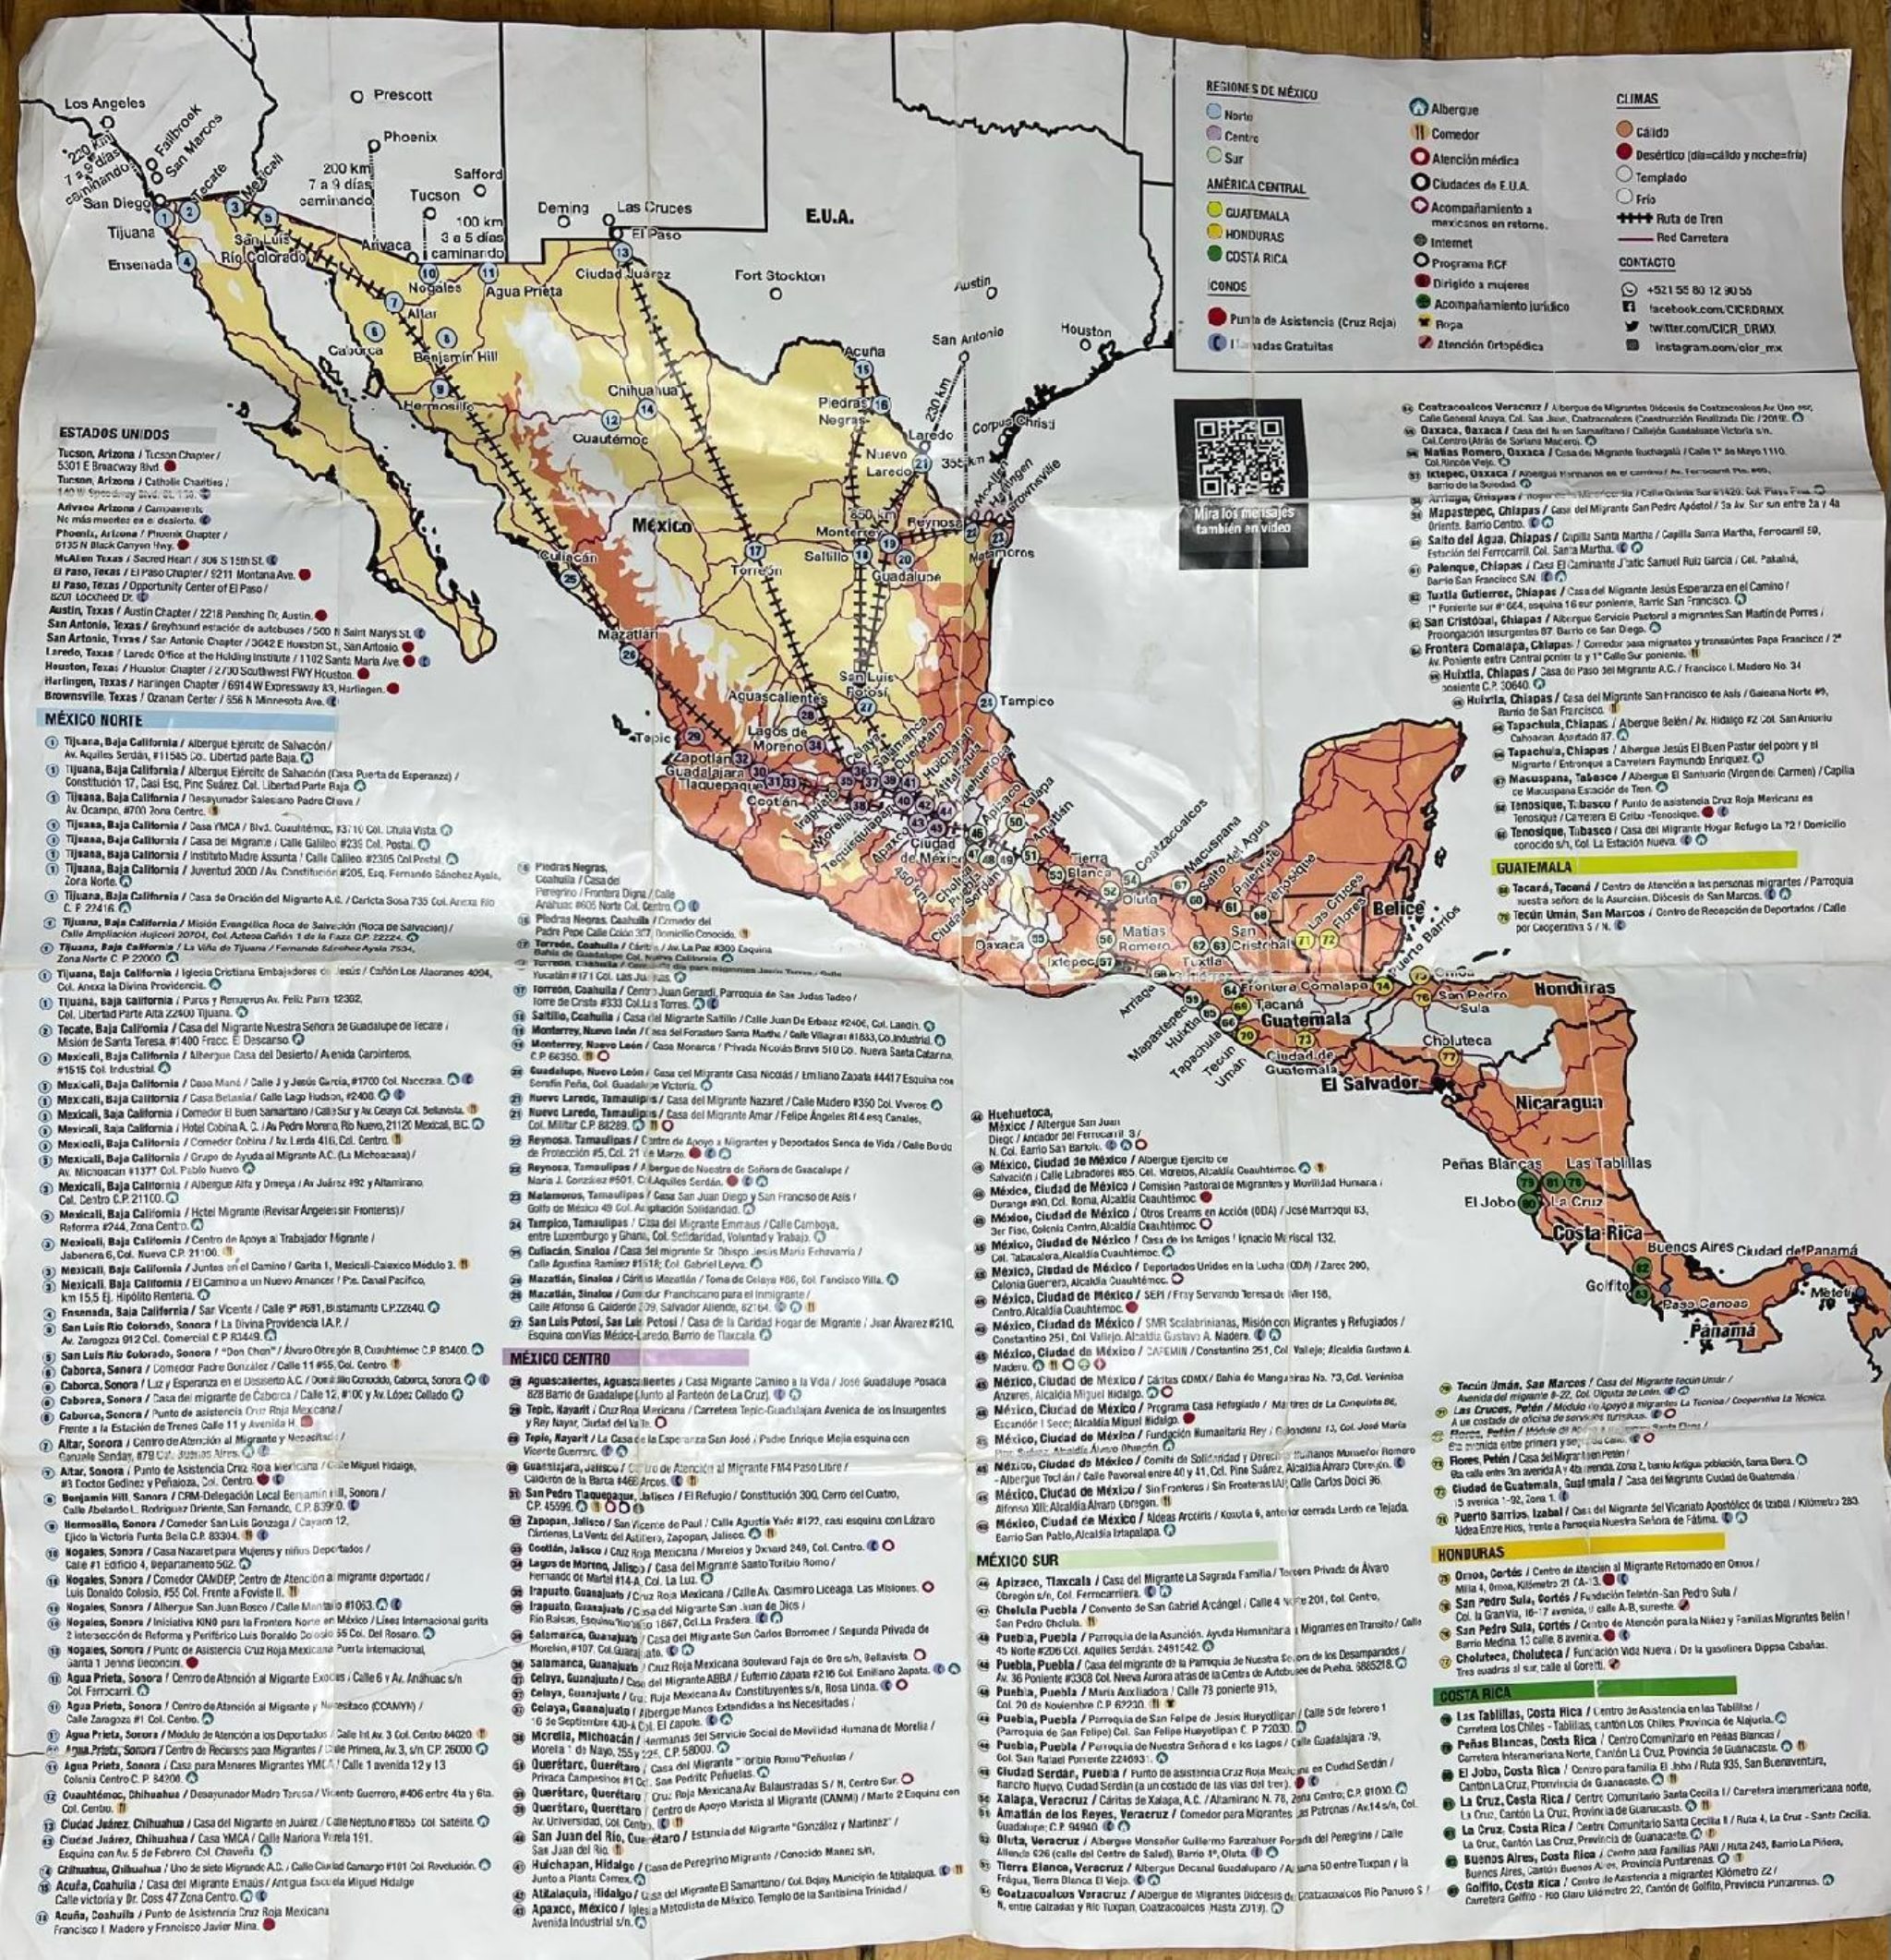 Los Angeles
220 Km
7 a 9 días
caminando
Fallbrook
San Marcos
San Diego
Tecate
Mexicali
Tijuana
Ensenada
San Luis
Río Colorado
Prescott
Phoenix
200 km
7 a 9 días
caminando
Safford
Tucson
100 km
3 a 5 días
caminando
Arivaca
Nogales
Agua Prieta
Altar
Caborca
Benjamín Hill
Hermosillo
Deming
Las Cruces
El Paso
Ciudad Juárez
E.U.A.
Fort Stockton
Austin
San Antonio
Houston
Acuña
Piedras
Negras
230 km
Laredo
Corpus Christi
Nuevo
Laredo
355 km
McAllen
Harlingen
Brownsville
Chihuahua
Cuautémoc
México
850 km
Reynosa
Monterrey
Saltillo
Matamoros
Guadalupe
Torreón
Culiacán
Mazatlán
San Luis
Potosí
Aguascalientes
Tampico
Tepic
Lagos de
Moreno
Zapotlán
Guadalajara
Tlaquepaque
Ocotlán
Irapuato
Morelia
Celaya
Salamanca
Querétaro
Huichapan
Atitalaquia
Huehuetoca
Apizaco
Xalapa
Amatlán
Apaxco
Ciudad
de México
450 km
Cholula
Puebla
Ciudad Serdán
Tierra
Blanca
Coatzacoalcos
Macuspana
Salto del Agua
Palenque
Tenosique
Oluta
Oaxaca
Matías
Romero
Ixtepec
San
Cristóbal
Tuxtla
Gutiérrez
Las Cruces
Flores
Belice
Puerto Barrios
Arriaga
Mapastepec
Huixtla
Tapachula
Tecún
Umán
Frontera Comalapa
Tacaná
Guatemala
Ciudad de
Guatemala
El Salvador
Omoa
San Pedro
Sula
Honduras
Choluteca
Nicaragua
Peñas Blancas
Las Tablillas
El Jobo
La Cruz
Costa Rica
Buenos Aires
Ciudad de Panamá
Golfito
Paso Canoas
Metetí
Panamá
REGIONES DE MÉXICO
Norte
Centro
Sur
AMÉRICA CENTRAL
GUATEMALA
HONDURAS
COSTA RICA
ICONOS
Punto de Asistencia (Cruz Roja)
Llamadas Gratuitas
Albergue
Comedor
Atención médica
Ciudades de E.U.A.
Acompañamiento a
mexicanos en retorno.
Internet
Programa RCF
Dirigido a mujeres
Acompañamiento jurídico
Ropa
Atención Ortopédica
CLIMAS
Cálido
Desértico (día=cálido y noche=fría)
Templado
Frío
Ruta de Tren
Red Carretera
CONTACTO
+521 55 80 12 90 55
facebook.com/CICRDRMX
twitter.com/CICR_DRMX
instagram.com/cicr_mx
Mira los mensajes
también en video
ESTADOS UNIDOS
Tucson, Arizona / Tucson Chapter /
5301 E Broadway Blvd.
Tucson, Arizona / Catholic Charities /
Arivaca Arizona / Campamento
No más muertes en el desierto.
Phoenix, Arizona / Phoenix Chapter /
6135 N Black Canyon Hwy.
McAllen Texas / Sacred Heart / 306 S 15th St.
El Paso, Texas / El Paso Chapter / 9211 Montana Ave.
El Paso, Texas / Opportunity Center of El Paso /
8201 Lockheed Dr.
Austin, Texas / Austin Chapter / 2218 Pershing Dr, Austin.
San Antonio, Texas / Greyhound estación de autobuses / 500 N Saint Marys St.
San Antonio, Texas / San Antonio Chapter / 3642 E Houston St., San Antonio.
Laredo, Texas / Laredo Office at the Holding Institute / 1102 Santa Maria Ave.
Houston, Texas / Houston Chapter / 2700 Southwest FWY Houston.
Harlingen, Texas / Harlingen Chapter / 6914 W Expressway 83, Harlingen.
Brownsville, Texas / Ozanam Center / 656 N Minnesota Ave.
MÉXICO NORTE
Tijuana, Baja California / Albergue Ejército de Salvación /
Av. Aquiles Serdán, #11585 Col. Libertad parte Baja.
Tijuana, Baja California / Albergue Ejército de Salvación (Casa Puerta de Esperanza) /
Constitución 17, Casi Esq. Pino Suárez. Col. Libertad Parte Baja.
Tijuana, Baja California / Desayunador Salesiano Padre Chava /
Av. Ocampo, #700 Zona Centro.
Tijuana, Baja California / Casa YMCA / Blvd. Cuauhtémoc, #3710 Col. Chula Vista.
Tijuana, Baja California / Casa del Migrante / Calle Galileo #239 Col. Postal.
Tijuana, Baja California / Instituto Madre Assunta / Calle Galileo #2305 Col Postal.
Tijuana, Baja California / Juventud 2000 / Av. Constitución #205, Esq. Fernando Sánchez Ayala,
Zona Norte.
Tijuana, Baja California / Casa de Oración del Migrante A.C. /
C.P. 22416
Tijuana, Baja California / Misión Evangélica Roca de Salvación (Roca de Salvación) /
Tijuana, Baja California / La Viña de Tijuana / Fernando Sánchez Ayala 7534,
Zona Norte C.P. 22000
Tijuana, Baja California / Iglesia Cristiana Embajadores de Jesús / Cañón Los Alacranes 4004,
Col. Anexa la Divina Providencia.
Tijuana, Baja California / Puros y Renuevos Av. Feliz Parra 12302,
Col. Libertad Parte Alta 22400 Tijuana.
Tecate, Baja California / Casa del Migrante Nuestra Señora de Guadalupe de Tecate /
Misión de Santa Teresa. #1400 Fracc. El Descanso.
Mexicali, Baja California / Albergue Casa del Desierto / Avenida Carpinteros,
#1515 Col. Industrial
Mexicali, Baja California / Casa Maná / Calle J y Jesús García, #1700 Col. Nacozari.
Mexicali, Baja California / Casa Betania / Calle Lago Hudson, #2408.
Mexicali, Baja California / Comedor El Buen Samaritano / Calle Sur y Av. Celaya Col. Bellavista.
Mexicali, Baja California / Hotel Cobina A. C. / Av Pedro Moreno, Río Nuevo, 21120 Mexicali, B.C.
Mexicali, Baja California / Comedor Cobina / Av. Lerda 416, Col. Centro.
Mexicali, Baja California / Grupo de Ayuda al Migrante A.C. (La Michoacana) /
Av. Michoacan #1377 Col. Pablo Nuevo
Mexicali, Baja California / Albergue Alfa y Omega / Av Juárez #92 y Altamirano,
Col. Centro C.P. 21100.
Mexicali, Baja California / Hotel Migrante (Revisar Ángeles sin Fronteras) /
Reforma #244, Zona Centro.
Mexicali, Baja California / Centro de Apoyo al Trabajador Migrante /
Jabonera 6, Col. Nueva C.P. 21100.
Mexicali, Baja California / Juntos en el Camino / Garita 1, Mexicali-Calexico Módulo 3.
Mexicali, Baja California / El Camino a un Nuevo Amancer / Pte. Canal Pacífico,
km 15.5 Ej. Hipólito Rentería.
Ensenada, Baja California / San Vicente / Calle 9ª #691, Bustamante C.P. 22840.
San Luis Río Colorado, Sonora / La Divina Providencia I.A.P. /
Av. Zaragoza 912 Col. Comercial C.P 83449.
San Luis Río Colorado, Sonora / "Don Chon" / Álvaro Obregón B, Cuauhtémoc C.P 83400.
Caborca, Sonora / Comedor Padre González / Calle 11 #55, Col. Centro
Caborca, Sonora / Luz y Esperanza en el Desierto A.C. / Domicilio Conocido, Caborca, Sonora.
Caborca, Sonora / Casa del migrante de Caborca / Calle 12, #100 y Av. López Collado
Caborca, Sonora / Punto de asistencia Cruz Roja Mexicana /
Frente a la Estación de Trenes Calle 11 y Avenida H.
Altar, Sonora / Centro de Atención al Migrante y Necesitado /
Altar, Sonora / Punto de Asistencia Cruz Roja Mexicana / Calle Miguel Hidalgo,
#3 Doctor Godinez y Peñaloza, Col. Centro.
Benjamín Hill, Sonora / CRM-Delegación Local Benjamín Hill, Sonora /
Calle Abelardo L. Rodríguez Oriente, San Fernando, C.P. 83900.
Hermosillo, Sonora / Comedor San Luis Gonzaga / Cayaon 12,
Ejido la Victoria Punta Bella C.P. 83304.
Nogales, Sonora / Casa Nazaret para Mujeres y niños Deportados /
Calle #1 Edificio 4, Departamento 502.
Nogales, Sonora / Comedor CAMDEP, Centro de Atención al migrante deportado /
Luis Donaldo Colosio, #55 Col. Frente a Foviste II.
Nogales, Sonora / Albergue San Juan Bosco / Calle Mantallo #1063.
Nogales, Sonora / Iniciativa KINO para la Frontera Norte en México / Línea Internacional garita
2 intersección de Reforma y Periférico Luis Donaldo Colosio 55 Col. Del Rosario.
Nogales, Sonora / Punto de Asistencia Cruz Roja Mexicana Puerta Internacional,
Garita 1 Dennis Deconcini.
Agua Prieta, Sonora / Centro de Atención al Migrante Exodus / Calle 6 y Av. Anáhuac s/n
Col. Ferrocarril.
Agua Prieta, Sonora / Centro de Atención al Migrante y Necesitado (CCAMYN) /
Calle Zaragoza #1 Col. Centro.
Agua Prieta, Sonora / Módulo de Atención a los Deportados / Calle Int Av. 3 Col. Centro 84020
Agua Prieta, Sonora / Centro de Recursos para Migrantes / Calle Primera, Av. 3, s/n, C.P. 26000
Agua Prieta, Sonora / Casa para Menores Migrantes YMCA / Calle 1 avenida 12 y 13
Colonia Centro C. P. 84200.
Cuauhtémoc, Chihuahua / Desayunador Madre Teresa / Vicente Guerrero, #406 entre 4ta y 6ta.
Col. Centro.
Ciudad Juárez, Chihuahua / Casa del Migrante en Juárez / Calle Neptuno #1855 Col. Satélite.
Ciudad Juárez, Chihuahua / Casa YMCA / Calle Mariona Varela 191.
Esquina con Av. 5 de Febrero. Col. Chaveña
Chihuahua, Chihuahua / Uno de siete Migrando A.C. / Calle Ciudad Camargo #101 Col. Revolución.
Acuña, Coahuila / Casa del Migrante Emaús / Antigua Escuela Miguel Hidalgo
Calle victoria y Dr. Coss 47 Zona Centro.
Acuña, Coahuila / Punto de Asistencia Cruz Roja Mexicana
Francisco I. Madero y Francisco Javier Mina.
Piedras Negras,
Coahuila / Casa del
Peregrino / Frontera Digna / Calle
Anáhuac #605 Norte Col. Centro.
Piedras Negras, Coahuila / Comedor del
Padre Pepe Calle Colón 307, Domicilio Conocido.
Torreón, Coahuila / Cáritas / Av. La Paz #300 Esquina
Bahía de Guadalupe Col. Nueva California
Torreón, Coahuila / Centro Juan Gerardi, Parroquia de San Judas Tadeo /
Torre de Cristo #333 Col. Las Torres.
Saltillo, Coahuila / Casa del Migrante Saltillo / Calle Juan De Erbaez #2406, Col. Landín.
Monterrey, Nuevo León / Casa del Forastero Santa Martha / Calle Villagran #1833, Co. Industrial.
Monterrey, Nuevo León / Casa Monarca / Privada Nicolás Bravo 510 Co. Nueva Santa Catarina,
C.P. 66350.
Guadalupe, Nuevo León / Casa del Migrante Casa Nicolás / Emiliano Zapata #4417 Esquina con
Serafín Peña, Col. Guadalupe Victoria.
Nuevo Laredo, Tamaulipas / Casa del Migrante Nazaret / Calle Madero #350 Col. Viveros
Nuevo Laredo, Tamaulipas / Casa del Migrante Amar / Felipe Ángeles 814 esq Canales,
Col. Militar C.P. 88289.
Reynosa, Tamaulipas / Centro de Apoyo a Migrantes y Deportados Senda de Vida / Calle Bordo
de Protección #5, Col. 21 de Marzo.
Reynosa, Tamaulipas / Albergue de Nuestra de Señora de Guadalupe /
María J. González #501, Col. Aquiles Serdán.
Matamoros, Tamaulipas / Casa San Juan Diego y San Franciso de Asis /
Golfo de México 49 Col. Ampliación Solidaridad.
Tampico, Tamaulipas / Casa del Migrante Emmaus / Calle Camboya,
entre Luxemburgo y Ghana, Col. Solidaridad, Voluntad y Trabajo.
Culiacán, Sinaloa / Casa del migrante Sr. Obispo Jesús María Echavarría /
Calle Agustina Ramírez #1518; Col. Gabriel Leyva.
Mazatlán, Sinaloa / Cáritas Mazatlán / Toma de Celaya #86, Col. Fancisco Villa.
Mazatlán, Sinaloa / Comedor Franciscano para el Inmigrante /
Calle Alfonso G. Calderón 309, Salvador Allende, 82164.
San Luis Potosí, San Luis Potosí / Casa de la Caridad Hogar del Migrante / Juan Álvarez #210,
Esquina con Vías México-Laredo, Barrio de Tlaxcala.
MÉXICO CENTRO
Aguascalientes, Aguascalientes / Casa Migrante Camino a la Vida / José Guadalupe Posada
828 Barrio de Guadalupe (Junto al Panteón de La Cruz).
Tepic, Nayarit / Cruz Roja Mexicana / Carretera Tepic-Guadalajara Avenica de los Insurgentes
y Rey Nayar, Ciudad del Valle.
Tepic, Nayarit / La Casa de la Esperanza San José / Padre Enrique Mejia esquina con
Vicente Guerrero.
Guadalajara, Jalisco / Centro de Atención al Migrante FM4 Paso Libre /
Calderón de la Barca #468 Arcos.
San Pedro Tlaquepaque, Jalisco / El Refugio / Constitución 300, Cerro del Cuatro,
C.P. 45599.
Zapopan, Jalisco / San Vicente de Paul / Calle Agustín Yañéz #122, casi esquina con Lázaro
Cárdenas, La Venta del Astillero, Zapopan, Jalisco.
Ocotlán, Jalisco / Cruz Roja Mexicana / Morelos y Oxnard 249, Col. Centro.
Lagos de Moreno, Jalisco / Casa del Migrante Santo Toribio Romo /
Hernando de Martel #14-A, Col. La Luz.
Irapuato, Guanajuato / Cruz Roja Mexicana / Calle Av. Casimiro Liceaga. Las Misiones.
Irapuato, Guanajuato / Casa del Migrante San Juan de Dios /
Salamanca, Guanajuato / Casa del Migrante San Carlos Borromeo / Segunda Privada de
Morelón, #107, Col. Guanajuato.
Salamanca, Guanajuato / Cruz Roja Mexicana Boulevard Faja de Oro s/n, Bellavista.
Celaya, Guanajuato / Casa del Migrante ABBA / Euferrio Zapata #216 Col. Emiliano Zapata.
Celaya, Guanajuato / Cruz Roja Mexicana Av Constituyentes s/n, Rosa Linda.
Celaya, Guanajuato / Albergue Manos Extendidas a los Necesitados /
16 de Septiembre 430-A Col. El Zapote.
Morelia, Michoacán / Hermanas del Servicio Social de Movilidad Humana de Morelia /
Morela 1 de Mayo, 255 y 225, C.P. 58000.
Querétaro, Querétaro / Casa del Migrante "Toribio Romo" Peñuelas /
Privaca Campesinos #1 Col. San Pedrito Peñuelas.
Querétaro, Querétaro / Cruz Roja Mexicana Av. Balaustradas S / N, Centro Sur.
Querétaro, Querétaro / Centro de Apoyo Marista al Migrante (CANMI) / Marte 2 Esquina con
Av. Universidad, Col. Centro.
San Juan del Río, Querétaro / Estancia del Migrante "González y Martínez" /
San Juan del Río.
Huichapan, Hidalgo / Casa de Peregrino Migrante / Conocido Manez s/n,
Junto a Planta Cemex.
Atitalaquia, Hidalgo / Casa del Migrante El Samaritano / Col. Bojay, Municipio de Atitalaquia.
Apaxco, México / Iglesia Metodista de México. Templo de la Santísima Trinidad /
Avenida Industrial s/n.
Huehuetoca,
México / Albergue San Juan
Diego / Andador del Ferrocarril S/
N. Col. Barrio San Bartolo.
México, Ciudad de México / Albergue Ejército de
Salvación / Calle Labradores #85, Col. Morelos, Alcaldía Cuauhtémoc.
México, Ciudad de México / Comisión Pastoral de Migrantes y Movilidad Humana /
Durango #90, Col. Roma, Alcaldía Cuauhtémoc
México, Ciudad de México / Otros Dreams en Acción (ODA) / José Marroquí 63,
3er Piso, Colonia Centro, Alcaldía Cuauhtémoc.
México, Ciudad de México / Casa de los Amigos / Ignacio Mariscal 132,
Col. Tabacalera, Alcaldía Cuauhtémoc.
México, Ciudad de México / Deportados Unidos en la Lucha (ODA) / Zarco 200,
Colonia Guerrero, Alcaldía Cuauhtémoc.
México, Ciudad de México / SEPI / Fray Servando Teresa de Mier 198,
Centro, Alcaldía Cuauhtemoc.
México, Ciudad de México / SMR Scalabrinianas, Misión con Migrantes y Refugiados /
Constantino 251, Col. Vallejo, Alcaldía Gustavo A. Madero.
México, Ciudad de México / CAFEMIN / Constantino 251, Col. Vallejo; Alcaldía Gustavo A.
Madero.
México, Ciudad de México / Cáritas CDMX / Bahía de Manganiras No. 73, Col. Verónica
Anzures, Alcaldía Miguel Hidalgo.
México, Ciudad de México / Programa Casa Refugiado / Mártires de La Conquista 86,
Escandón I Secc; Alcaldía Miguel Hidalgo.
México, Ciudad de México / Fundación Humanitaria Rey / Golondrina 13, Col. José María
Pino Suárez, Alcaldía Álvaro Obregón.
México, Ciudad de México / Comité de Solidaridad y Derechos Humanos Monseñor Romero
- Albergue Tochán / Calle Pavoreal entre 40 y 41, Col. Pino Suárez, Alcaldía Álvaro Obregón.
México, Ciudad de México / Sin Fronteras / Sin Fronteras IAP, Calle Carlos Dolci 96,
Alfonso XIII; Alcaldía Álvaro Obregon.
México, Ciudad de México / Aldeas Arcoíris / Koxuta 6, anterior cerrada Lerdo de Tejada.
Barrio San Pablo, Alcaldía Iztapalapa.
MÉXICO SUR
Apizaco, Tlaxcala / Casa del Migrante La Sagrada Familia / Tercera Privada de Álvaro
Obregón s/n, Col. Ferrocarrilera.
Cholula Puebla / Convento de San Gabriel Arcángel / Calle 4 Norte 201, Col. Centro,
San Pedro Cholula.
Puebla, Puebla / Parroquia de la Asunción. Ayuda Humanitaria a Migrantes en Tránsito / Calle
45 Norte #206 Col. Aquiles Serdán. 2491542.
Puebla, Puebla / Casa del migrante de la Parroquia de Nuestra Señora de los Desamparados /
Av. 36 Poniente #3308 Col. Nueva Aurora atrás de la Centra de Autobuses de Puebla. 6885218.
Puebla, Puebla / María Auxiliadora / Calle 73 poniente 915,
Col. 20 de Noviembre C.P 62230.
Puebla, Puebla / Parroquia de San Felipe de Jesus Hueyotlican / Calle 5 de febrero 1
(Parroquia de San Felipe) Col. San Felipe Hueyotlipan C. P 72030.
Puebla, Puebla / Parroquia de Nuestra Señora de los Lagos / Calle Guadalajara 79,
Col. San Rafael Poniente 2246931.
Ciudad Serdán, Puebla / Punto de asistencia Cruz Roja Mexicana en Ciudad Serdán /
Rancho Nuevo, Ciudad Serdán (a un costado de las vías del tren).
Xalapa, Veracruz / Cáritas de Xalapa, A.C. / Altamirano N. 78, Zona Centro; C.P. 91000.
Amatlán de los Reyes, Veracruz / Comedor para Migrantes Las Patronas / Av.14 s/n, Col.
Guadalupe; C.P. 94940
Oluta, Veracruz / Albergue Monseñor Guillermo Ranzahuer Posada del Peregrino / Calle
Allende 626 (calle del Centro de Salud), Barrio 4ª, Oluta.
Tierra Blanca, Veracruz / Albergue Decanal Guadalupano / Aduana 50 entre Tuxpan y la
Fragua, Tierra Blanca El Viejo.
Coatzacoalcos Veracruz / Albergue de Migrantes Diócesis de Coatzacoalcos Río Panuco S /
N, entre Calzadas y Río Tuxpan, Coatzacoalcos (Hasta 2019).
Coatzacoalcos Veracruz / Albergue de Migrantes Diócesis de Coatzacoalcos Av. Uno
Calle General Anaya, Col. San José, Coatzacoalcos (Construcción Finalizada Dic / 2019).
Oaxaca, Oaxaca / Casa del Buen Samaritano / Callejón Guadalupe Victoria s/n.
Cal.Centro (Atrás de Soriana Macero).
Matías Romero, Oaxaca / Casa del Migrante Guchagalú / Calle 1ª de Mayo 1110.
Col. Rincón Viejo.
Ixtepec, Oaxaca / Albergue Hermanos en el camino /
Barrio de la Soledad.
Mapastepec, Chiapas / Casa del Migrante San Pedro Apóstol / 3a Av. Sur sun entre 2a y 4a
Oriente. Barrio Centro.
Salto del Agua, Chiapas / Capilla Santa Martha / Capilla Santa Martha, Ferrocarril 59,
Estación del Ferrocarril. Col. Santa Martha.
Palenque, Chiapas / Casa El Caminante J'atic Samuel Ruiz García / Col. Pakalná,
Barrio San Francisco S/N.
Tuxtla Gutierrez, Chiapas / Casa del Migrante Jesús Esperanza en el Camino /
1ª Poniente sur #1664, esquina 16 sur poniente, Barrio San Francisco.
San Cristóbal, Chiapas / Albergue Servicio Pastoral a migrantes San Martín de Porres /
Prolongación Insurgentes 87. Barrio de San Diego.
Frontera Comalapa, Chiapas / Comedor para migrantes y transeúntes Papa Francisco / 2ª
Av. Poniente entre Central poniente y 1ª Calle Sur poniente.
Huixtla, Chiapas / Casa de Paso del Migrante A.C. / Francisco I. Madero No. 34
poniente C.P. 30640.
Huixtla, Chiapas / Casa del Migrante San Francisco de Asís / Galeana Norte #9,
Barrio de San Francisco.
Tapachula, Chiapas / Albergue Belén / Av. Hidalgo #2 Col. San Antonio
Cahoacan. Apartado 87.
Tapachula, Chiapas / Abergue Jesús El Buen Pastor del pobre y el
Migrante / Entronque a Carretera Raymundo Enriquez.
Macuspana, Tabasco / Albergue El Santuario (Virgen del Carmen) / Capilla
de Macuspana Estación de Tren.
Tenosique, Tabasco / Punto de asistencia Cruz Roja Mexicana en
Tenosique / Carretera El Ceibo -Tenosique.
Tenosique, Tabasco / Casa del Migrante Hogar Refugio La 72 / Domicilio
conocido s/n, Col. La Estación Nueva.
GUATEMALA
Tacaná, Tacaná / Centro de Atención a las personas migrantes / Parroquia
nuestra señora de la Asunción. Diócesis de San Marcos.
Tecún Umán, San Marcos / Centro de Recepción de Deportados / Calle
por Cooperativa S / N.
Tecún Umán, San Marcos / Casa del Migrante Tecún Umán /
Avenida del migrante 0-22, Col. Olguita de León.
Las Cruces, Petén / Módulo de Apoyo a migrantes La Técnica / Cooperativa La Técnica.
A un costado de oficina de servicios turísticos.
Flores, Petén / Casa del Migrante en Petén /
6ta calle entre 3ra avenida A y 4ta avenida, Zona 2, barrio Antigua población, Santa Elena.
Ciudad de Guatemala, Guatemala / Casa del Migrante Ciudad de Guatemala /
15 avenida 1-92, Zona 1.
Puerto Barrios, Izabal / Casa del Migrante del Vicariato Apostólico de Izabal / Kilómetro 283
Aldea Entre Ríos, frente a Parroquia Nuestra Señora de Fátima.
HONDURAS
Omoa, Cortés / Centro de Atención al Migrante Retornado en Omoa /
Milla 4, Omoa, Kilómetro 21 CA-13.
San Pedro Sula, Cortés / Fundación Teletón-San Pedro Sula /
Col. la Gran Vía, 16-17 avenica, 11 calle A-B, sureste.
San Pedro Sula, Cortés / Centro de Atención para la Niñez y Familias Migrantes Belén /
Barrio Medina, 13 calle, 8 avenica.
Choluteca, Choluteca / Fundación Vida Nueva / De la gasolinera Dippsa Cabañas.
Tres cuadras al sur, calle al Goretti.
COSTA RICA
Las Tablillas, Costa Rica / Centro de Asistencia en Las Tablillas /
Carretera Los Chiles - Tablillas, cantón Los Chiles, Provincia de Alajuela.
Peñas Blancas, Costa Rica / Centro Comunitario en Peñas Blancas /
Carretera Interamericana Norte, Cantón La Cruz, Provincia de Guanacaste.
El Jobo, Costa Rica / Centro para familia El Jobo / Ruta 935, San Buenaventura,
Cantón La Cruz, Provincia de Guanacaste.
La Cruz, Costa Rica / Centre Comunitario Santa Cecilia I / Carretera interamericana norte,
La Cruz, Cantón La Cruz, Provincia de Guanacaste.
La Cruz, Costa Rica / Centre Comunitario Santa Cecilia II / Ruta 4, La Cruz - Santa Cecilia.
La Cruz, Cantón Las Cruz, Provincia de Guanacaste.
Buenos Aires, Costa Rica / Centro para Familias PANI / Ruta 245, Barrio La Piñera,
Buenos Aires, Cantón Buenos Aires, Provincia Puntarenas.
Golfito, Costa Rica / Centro de Asistencia a migrantes Kilómetro 22 /
Carretera Golfito - Río Claro kilómetro 22, Cantón de Golfito, Provincia Puntarenas.